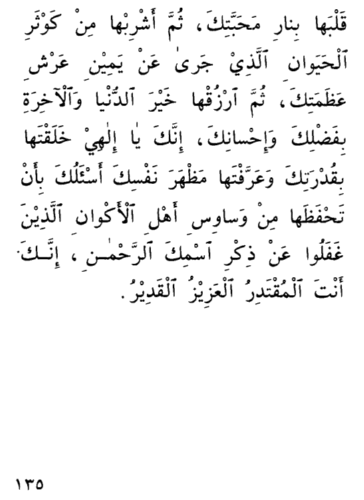 قَلْبَها بِنارِ مَحَبَّتِكَ، ثُمَّ أَشْرِبْها مِنْ كَوْثَرِ
ٱلْحَيَوانِ ٱلَّذِيْ جَرىٰ عَنْ يَمِيْنِ عَرْشِ
عَظَمَتِكَ، ثُمَّ ٱرْزُقْها خَيْرَ ٱلدُّنْيا وَٱلْآخِرَةِ
بِفَضْلِكَ وَإِحْسانِكَ، إِنَّكَ يٰا إِلٰهِيْ خَلَقْتَها
بِقُدْرَتِكَ وَعَرَّفْتَها مَظْهَرَ نَفْسِكَ أَسْئَلُكَ بِأَنْ
تَحْفَظَها مِنْ وَساوِسِ أَهْلِ ٱلْأَكْوانِ ٱلَّذِيْنَ
غَفَلُوا عَنْ ذِكْرِ ٱسْمِكَ ٱلرَّحْمٰنِ، إِنَّكَ
أَنْتَ ٱلْمُقْتَدِرُ ٱلْعَزِيْزُ ٱلْقَدِيْرُ.
١٣٥